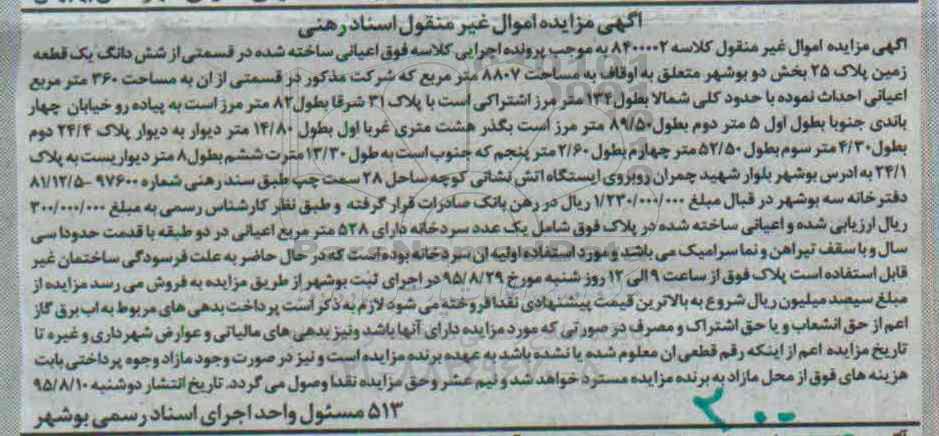 آگهی مزایده اموال غیر منقول اسناد رهنی
اگهی مزایده اموال غیر منقول کلاسه ۸۴۰۰۰۰۲ به موجب پرونده اجرایی کلاسه فوق اعیانی ساخته شده در قسمتی از شش دانگ یک قطعه
زمین پلاک ۲۵ بخش دو بوشهر متعلق به اوقاف به مساحت ۸۸۰۷ متر مربع که شرکت مذکور در قسمتی از ان به مساحت ۳۶۰ متر مربع
اعیانی احداث نموده با حدود کلی شمالا بطول ۱۳۴ متر مرز اشتراکی است با پلاک ۳۱ شرقا بطول ۸۲ متر مرز است به پیاده رو خیابان چهار
باندی جنوبا بطول اول ۵ متر دوم بطول ۸۹/۵۰ متر مرز است بگذر هشت متری غربا اول بطول ۱۴/۸۰ متر دیوار به دیوار پلاک ۲۴/۴ دوم
بطول ۴/۳۰ متر سوم بطول ۵۲/۵۰ متر چهارم بطول ۲/۶۰ متر پنجم که جنوب است به طول ۱۳/۳۰ مترت ششم بطول ۸ متر دیواریست به پلاک
۲۴/۱ به ادرس بوشهر بلوار شهید چمران روبروی ایستگاه اتش نشانی کوچه ساحل ۲۸ سمت چپ طبق سند رهنی شماره ۹۷۶۰۰ -۸۱/۱۲/۵
دفتر خانه سه بوشهر در قبال مبلغ ۱/۲۳۰/۰۰۰/۰۰۰ ریال در رهن بانک صادرات قرار گرفته و طبق نظر کارشناس رسمی به مبلغ ۳۰۰/۰۰۰/۰۰۰
ریال ارزیابی شده و اعیانی ساخته شده در پلاک فوق شامل یک عدد سردخانه دارای ۵۲۸ متر مربع اعیانی در دو طبقه با قدمت حدودا سی
سال و با سقف تیراهن و نما سرامیک می باشد و مورد استفاده اولیه ان سردخانه بوده است که در حال حاضر به علت فرسودگی ساختمان غیر
قابل استفاده است پلاک فوق از ساعت ۹ الی ۱۲ روز شنبه مورخ ۹۵/۸/۲۹ در اجرای ثبت بوشهر از طریق مزایده به فروش می رسد مزایده از
مبلغ سیصد میلیون ریال شروع به بالاترین قیمت پیشنهادی نقدا فروخته می شود لازم به ذکر است پرداخت بدهی های مربوط به اب برق گاز
اعم از حق انشعاب و یا حق اشتراک و مصرف در صورتی که مورد مزایده دارای آنها باشد و نیز بدهی های مالیاتی و عوارض شهرداری و غیره تا
تاریخ مزایده اعم از اینکه رقم قطعی ان معلوم شده یا نشده باشد به عهده برنده مزایده است و نیز در صورت وجود مازاد وجوه پرداختی بابت
هزینه های فوق از محل مازاد به برنده مزایده مسترد خواهد شد و نیم عشر و حق مزایده نقدا وصول می گردد. تاریخ انتشار دوشنبه ۹۵/۸/۱۰
۵۱۳ مسئول واحد اجرای اسناد رسمی بوشهر